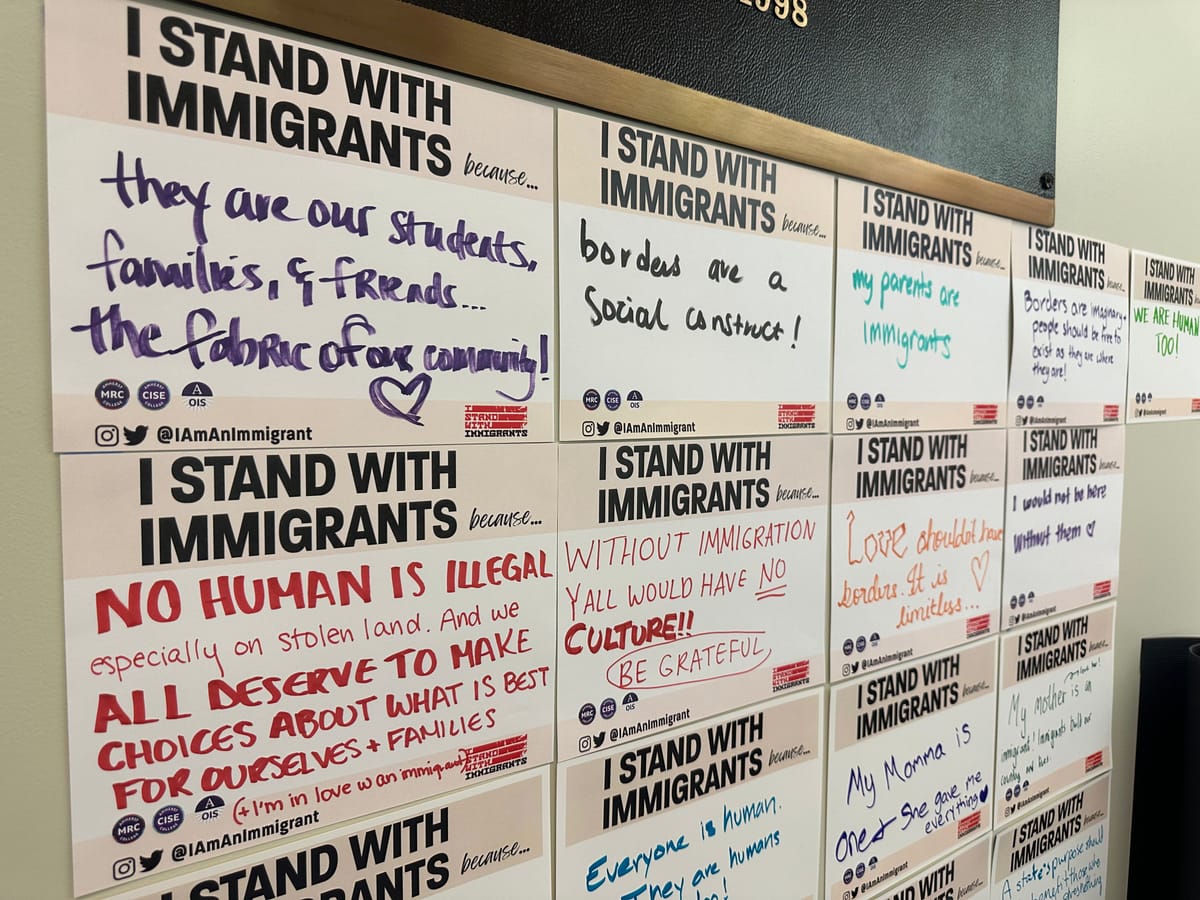 1998
I STAND WITH
IMMIGRANTS because...
they are our students,
families, & friends...
the fabric of our community!
AMHERST COLLEGE
MRC
AMHERST COLLEGE
CISE
A
OIS
@IAmAnImmigrant
I
STAND
WITH
IMMIGRANTS
I STAND WITH
IMMIGRANTS because...
borders are a
social construct!
MRC
CISE
A
OIS
@IAmAnImmigrant
I
STAND
WITH
IMMIGRANTS
I STAND WITH
IMMIGRANTS because...
my parents are
immigrants
@IAmAnImmigrant
I STAND WITH
IMMIGRANTS because...
Borders are imaginary +
people should be free to
exist as they are where
they are!
@IAmAnImmigrant
I STAND WITH
IMMIGRANTS
WE ARE HUMAN
TOO!
I STAND WITH
IMMIGRANTS because...
NO HUMAN IS ILLEGAL
especially on stolen land. And we
ALL DESERVE TO MAKE
CHOICES ABOUT WHAT IS BEST
FOR OURSELVES + FAMILIES
(+ I'm in love w an immigrant)
AMHERST COLLEGE
MRC
AMHERST COLLEGE
CISE
A
OIS
@IAmAnImmigrant
I
STAND
WITH
IMMIGRANTS
I STAND WITH
IMMIGRANTS because...
WITHOUT IMMIGRATION
YALL WOULD HAVE NO
CULTURE!!
BE GRATEFUL
MRC
CISE
A
OIS
@IAmAnImmigrant
I
STAND
WITH
IMMIGRANTS
I STAND WITH
IMMIGRANTS because...
Love shouldn't have
borders. It is
limitless...
@IAmAnImmigrant
I STAND WITH
IMMIGRANTS because...
I would not be here
without them
@IAmAnImmigrant
I STAND WITH
IMMIGRANTS because...
I STAND WITH
IMMIGRANTS because...
Everyone is human.
They are humans
I STAND WITH
IMMIGRANTS because...
My Momma is
one & she gave me
everything
@IAmAnImmigrant
I STAND WITH
IMMIGRANTS because...
My mother is an
immigrant! Immigrants built our
country and lives.
@IAmAnImmigrant
I STAND WITH
IMMIGRANTS because...
I STAND WITH
IMMIGRANTS because...
A state's purpose should